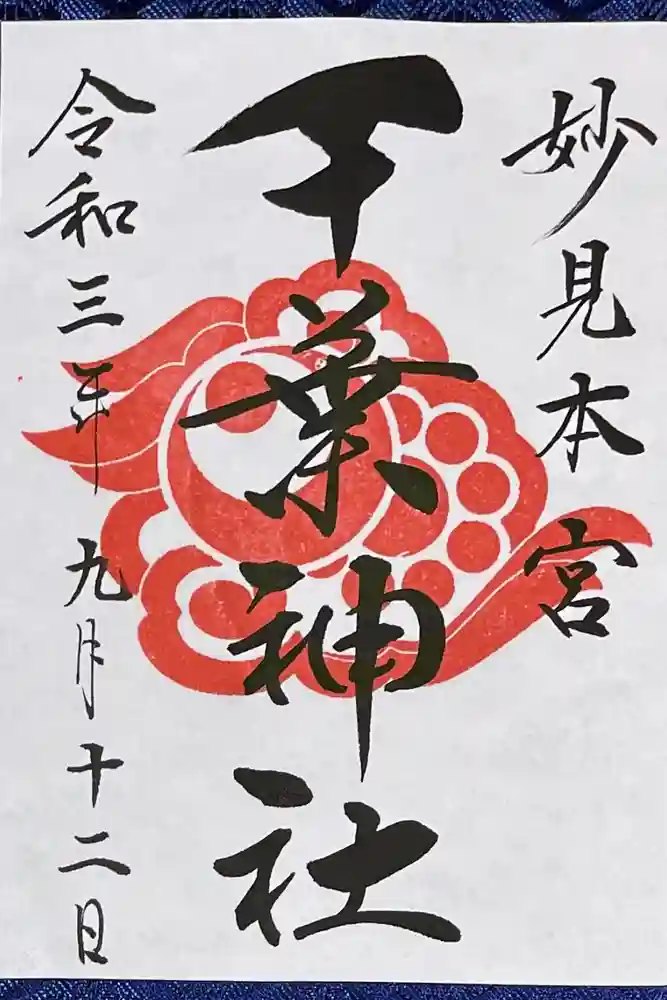 妙見本宮
千葉神社
令和三年九月十二日